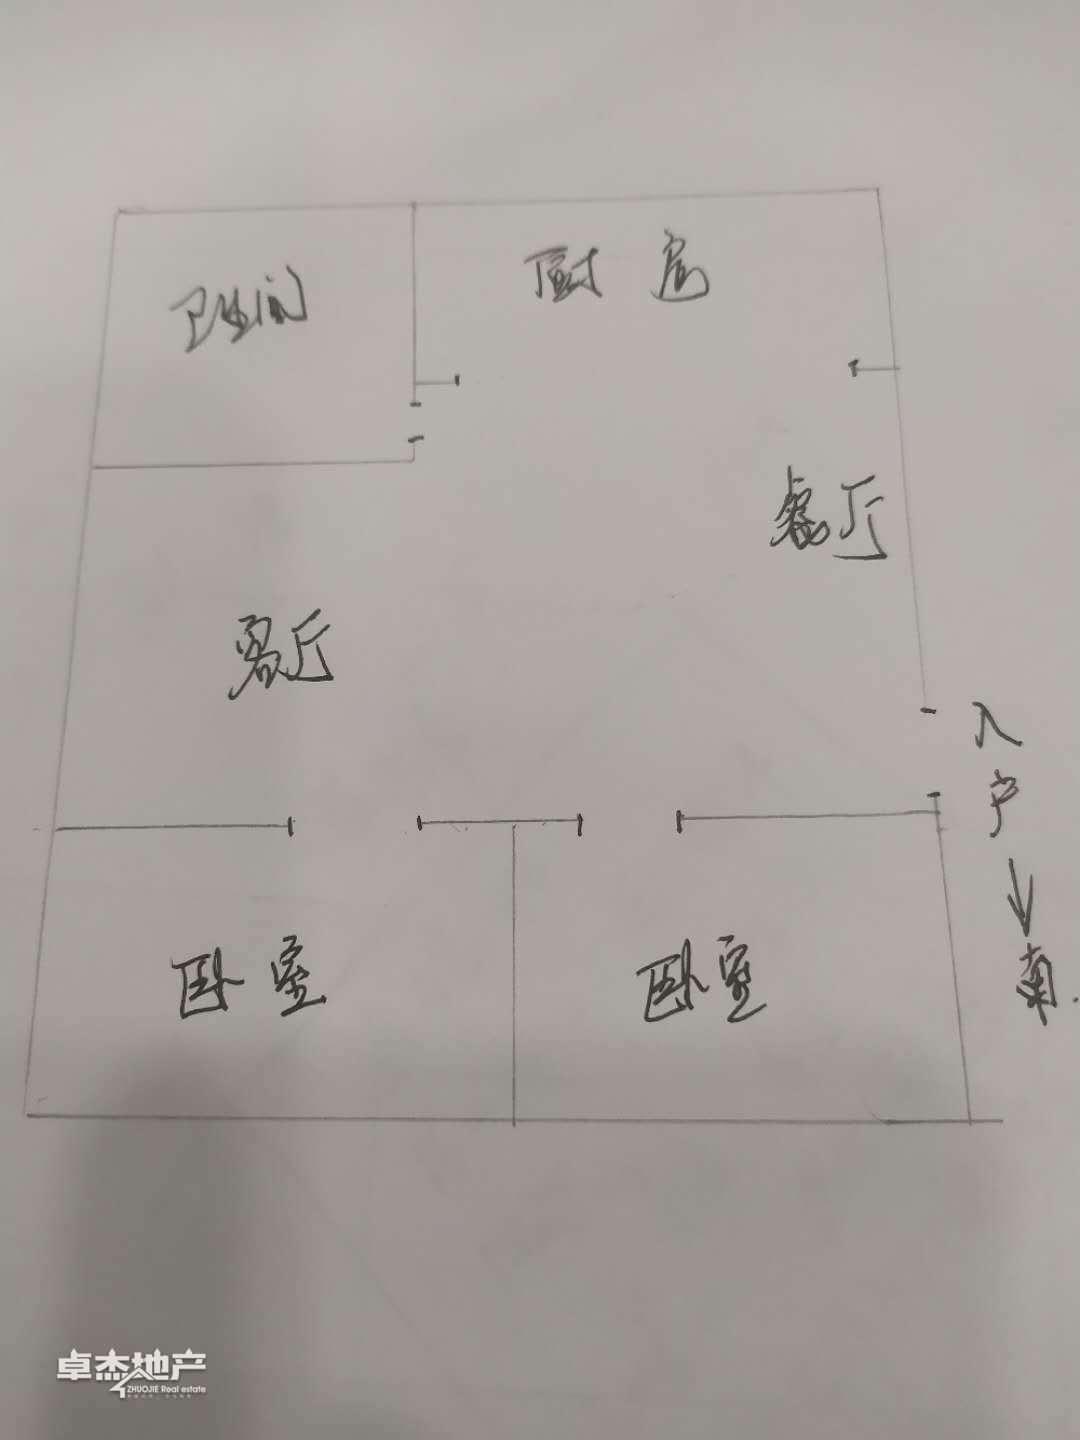 卫生间
厨房
餐厅
客厅
入户
卧室
卧室
南
卓杰地产
ZHUOJIE Real estate